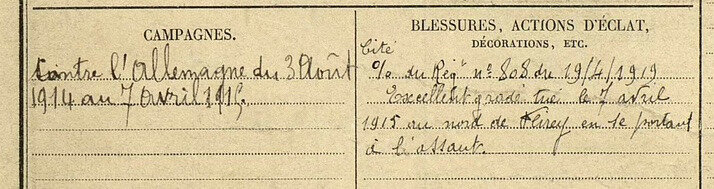 CAMPAGNES.
Contre l'Allemagne du 3 Août
1914 au 7 avril 1915.
BLESSURES, ACTIONS D'ÉCLAT,
DÉCORATIONS, ETC.
Cité
% du Rég^t n° 808 du 19/4/1919
Excellent gradé tué le 7 avril
1915 au nord de Flirey en se portant
à l'assaut.